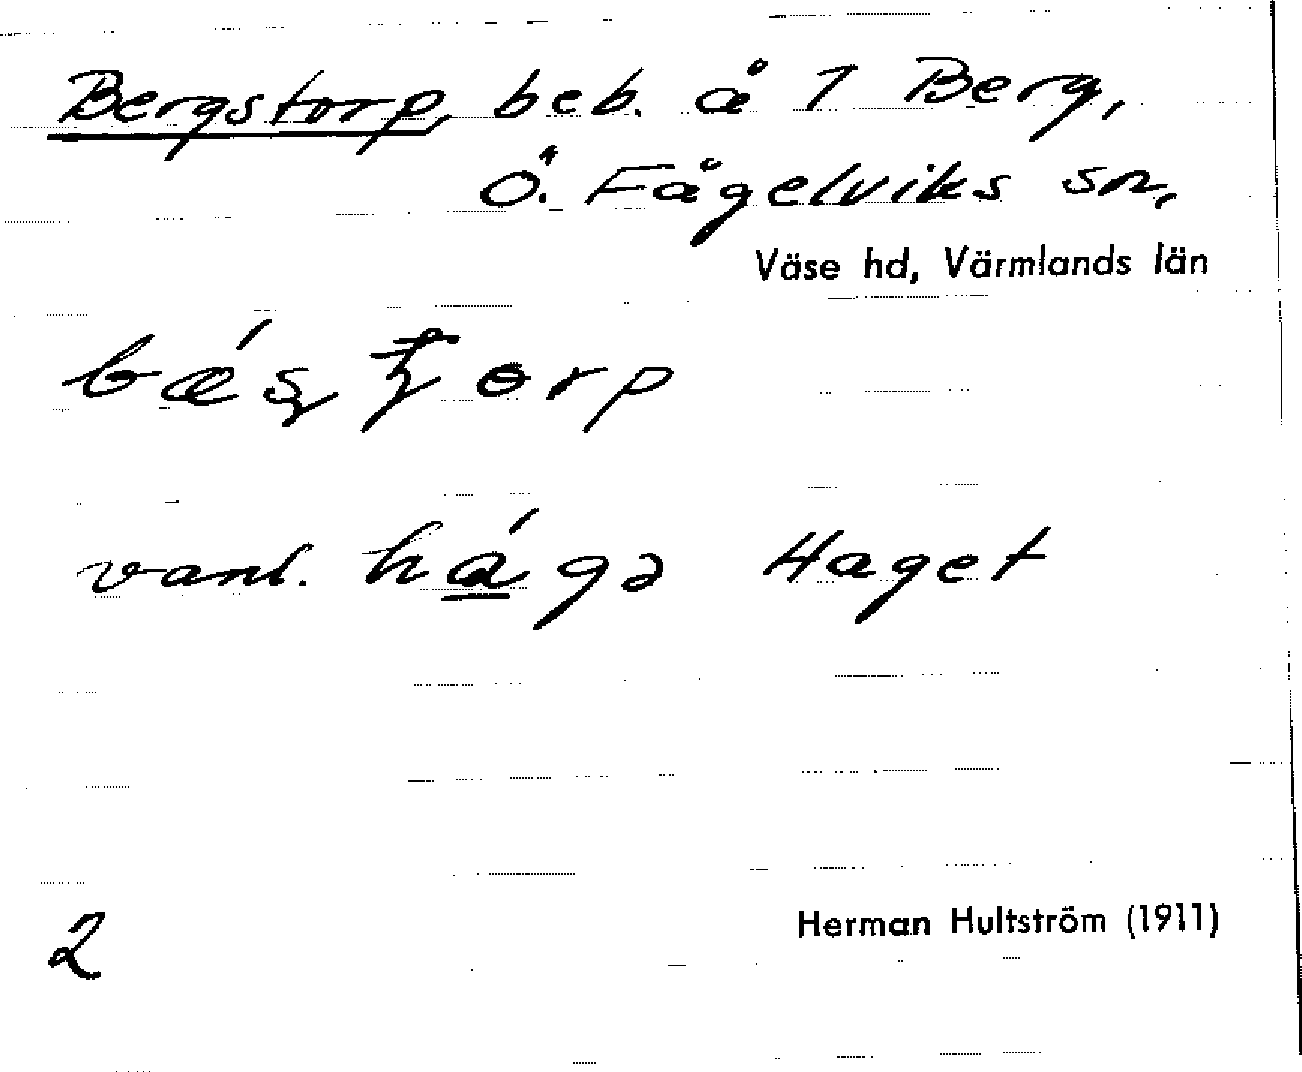 Bergstorp, beb. å 1 Berg,
Ö. Fågelviks sn,
Väse hd, Värmlands län
vanl. há̲gə Haget
2 Herman Hultström (1911)